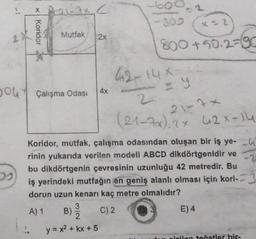 x
Koridor
Mutfak
2x
Çalışma Odası
4x
x = 2
800 + 50.2 = 9
42 - 14x
= y
2
21 - 7x
(21-7x).2x 42x-14
Koridor, mutfak, çalışma odasından oluşan bir iş ye-
rinin yukarıda verilen modeli ABCD dikdörtgenidir ve
bu dikdörtgenin çevresinin uzunluğu 42 metredir. Bu
iş yerindeki mutfağın en geniş alanlı olması için kori-
dorun uzun kenarı kaç metre olmalıdır?
A) 1 B) 3/2 C) 2 E) 4
y = x² + kx + 5